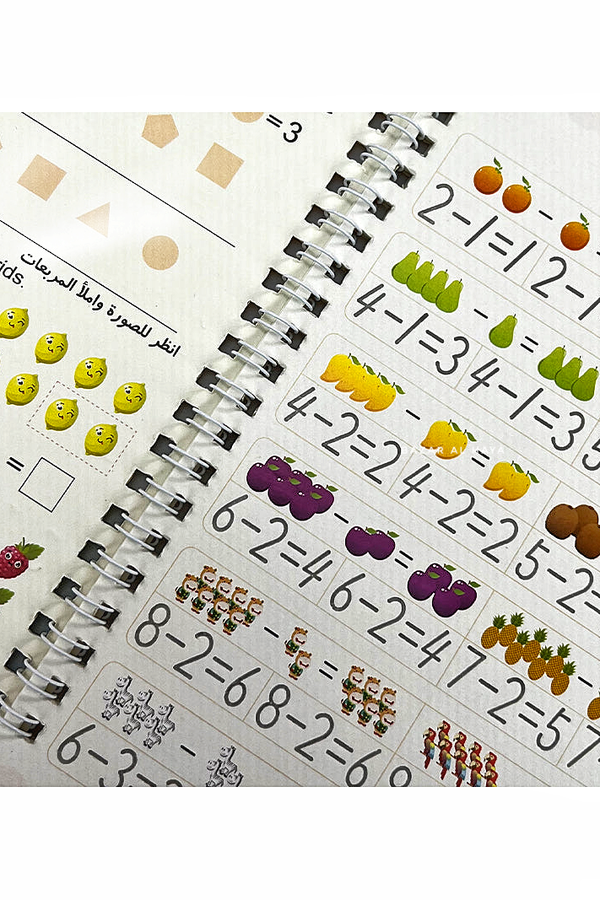 =3
انظر للصورة واملأ المربعات
=
- 
2-1=1 2-1
- =
4-1=3 4-1=3 5
- =
4-2=2 4-2=2 5-2=
- =
6-2=4 6-2=4 7-2=5 7
- =
8-2=6 8-2=6
-
6-3=